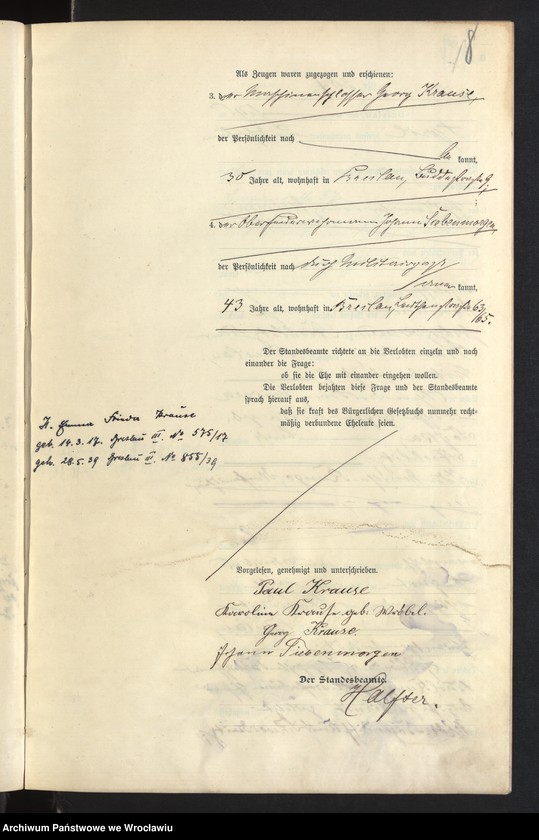 8
Als Zeugen waren zugezogen und erschienen:
3. der Maschinenschlosser Georg Krause,
der Persönlichkeit nach
be kannt,
30 Jahre alt, wohnhaft in Breslau, 9;
4. der Oberfeuerwehrmann Johann Siebenmorgen,
der Persönlichkeit nach durch Militairpaß
kannt,
43 Jahre alt, wohnhaft in Breslau, 63/
65.
Der Standesbeamte richtete an die Verlobten einzeln und nach
einander die Frage:
ob sie die Ehe mit einander eingehen wollen.
Die Verlobten bejahten diese Frage und der Standesbeamte
sprach hierauf aus,
daß sie kraft des Bürgerlichen Gesetzbuchs nunmehr recht-
mäßig verbundene Eheleute seien.
Frieda Krause
geb. 14.3.17. Breslau III. No 575/17
28.5.39 Breslau III No 855/39
Vorgelesen, genehmigt und unterschrieben.
Paul Krause
Karoline Krause geb. Wróbel.
Georg Krause.
Johann Siebenmorgen
Der Standesbeamte.
Halfter.
Archiwum Państwowe we Wrocławiu